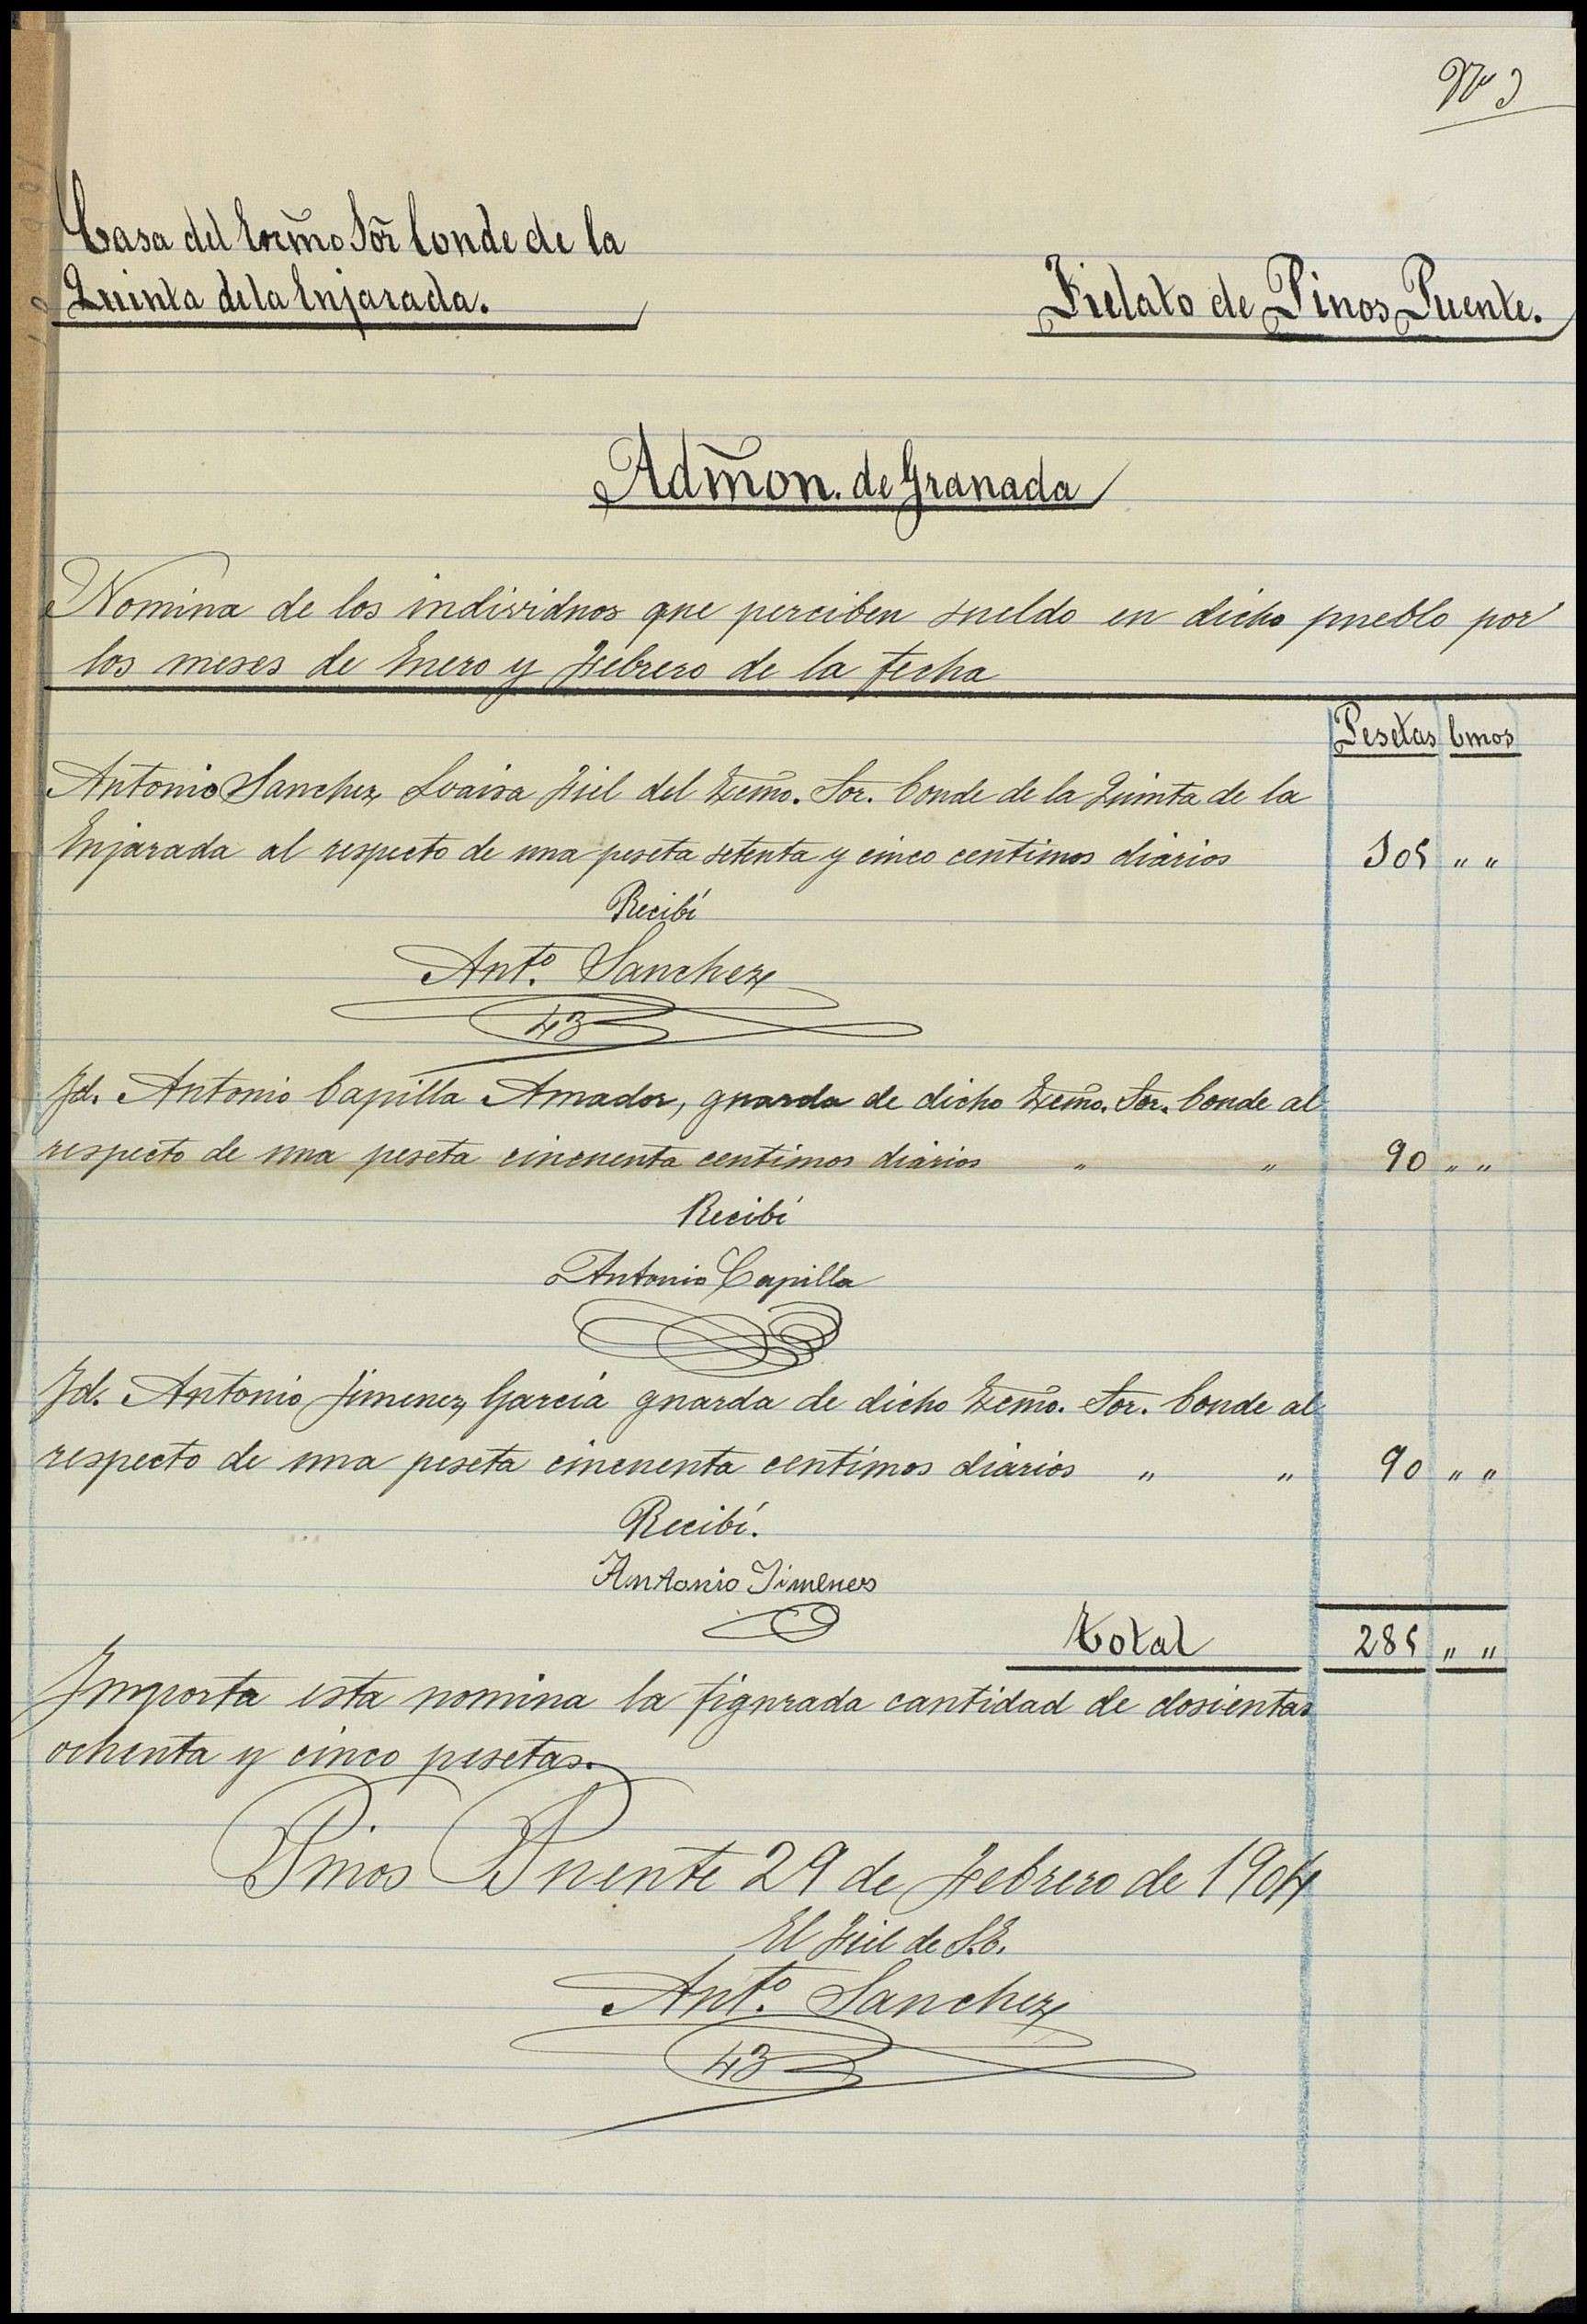 Nº 3
Casa del Excm̃o Sõr Conde de la
Quinta de la Enjarada.
Fielato de Pinos Puente.
Adm̃on. de Granada
Nomina de los individuos que perciben sueldo en dicho pueblo por
los meses de Enero y Febrero de la fecha
Pesetas Cmos
Antonio Sanchez Loaisa Fiel del Excmo. Sor. Conde de la Quinta de la
Enjarada al respecto de una peseta setenta y cinco centimos diarios 105 " "
Recibí
Antº. Sanchez
43
Id. Antonio Capilla Amador, guarda de dicho Excmo. Sor. Conde al
respecto de una peseta cincuenta centimos diarios " " 90 " "
Recibí
Antonio Capilla
Id. Antonio Jimenez Garcia guarda de dicho Excmo. Sor. Conde al
respecto de una peseta cincuenta centimos diarios " " 90 " "
Recibí.
Antonio Jimenes
Total 285 " "
Importa esta nomina la figurada cantidad de dosientas
ochenta y cinco pesetas.
Pinos Puente 29 de Febrero de 1904
El Fiel de S.E.
Antº. Sanchez
43